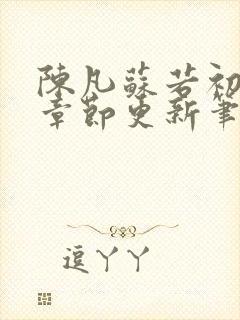 陳凡蘇若初
章節更新筆
逗丫丫